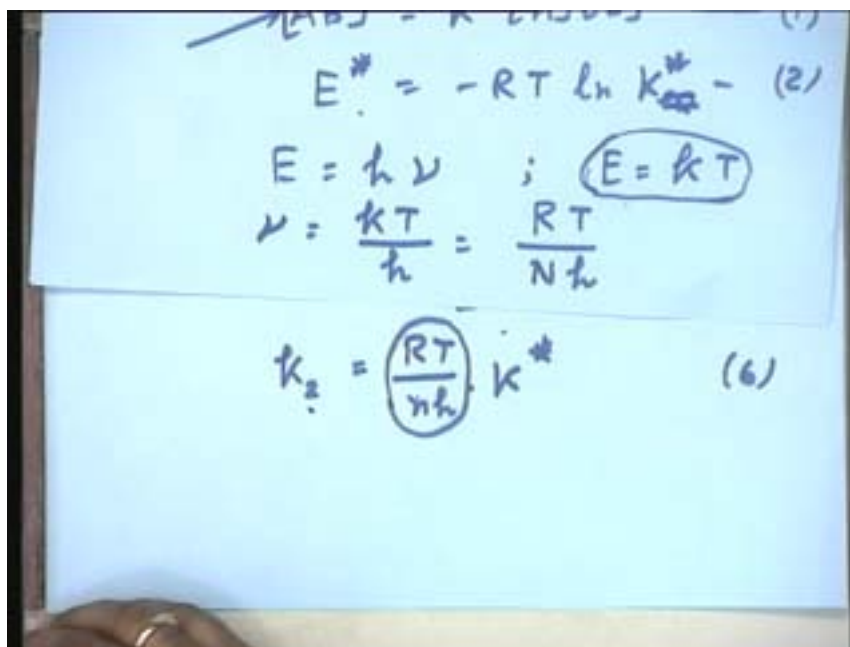 (1)
E* = - RT ln K* - (2)
E = hν ; E = kT
ν = kT/h = RT/Nh
k₂ = RT/nh . K* (6)